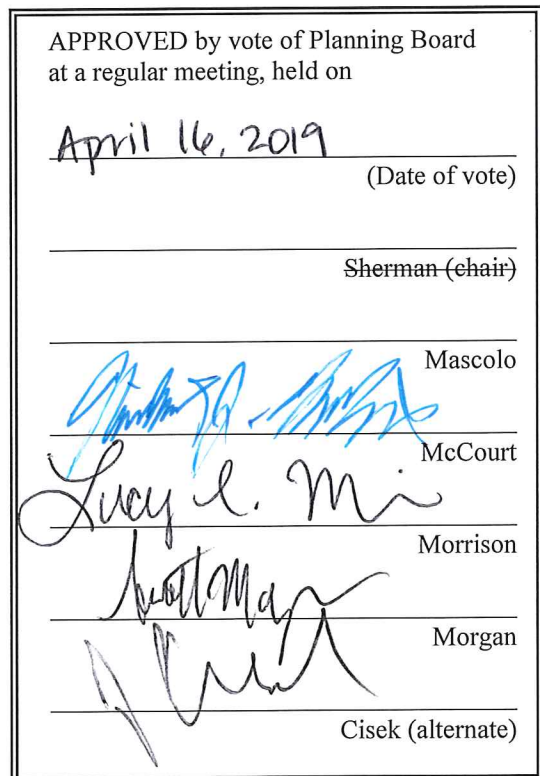 APPROVED by vote of Planning Board
at a regular meeting, held on
April 16, 2019
(Date of vote)
Sherman (chair)
Mascolo
McCourt
Lucy C. M
Morrison
Morgan
Cisek (alternate)